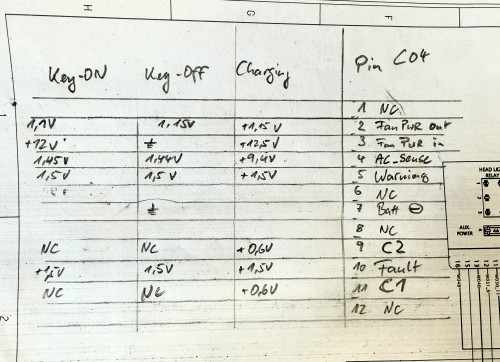 H G F
Key-ON Key-Off Charging Pin C04
1 NC
1,1V 1,15V +1,15V 2 Fan PWR out
+12V ⏚ +12,5V 3 Fan PWR in
1,45V 1,44V +9,4V 4 AC-Sense
1,5V 1,5V +1,5V 5 Warning
6 NC
⏚ 7 Batt ⊖
8 NC
NC NC +0,6V 9 C2
+1,5V 1,5V +1,5V 10 Fault
NC NC +0,6V 11 C1
12 NC
HEAD LIG
RELAY
1
2
3
AUX.
POWER
4
16 15 13 12 11
2